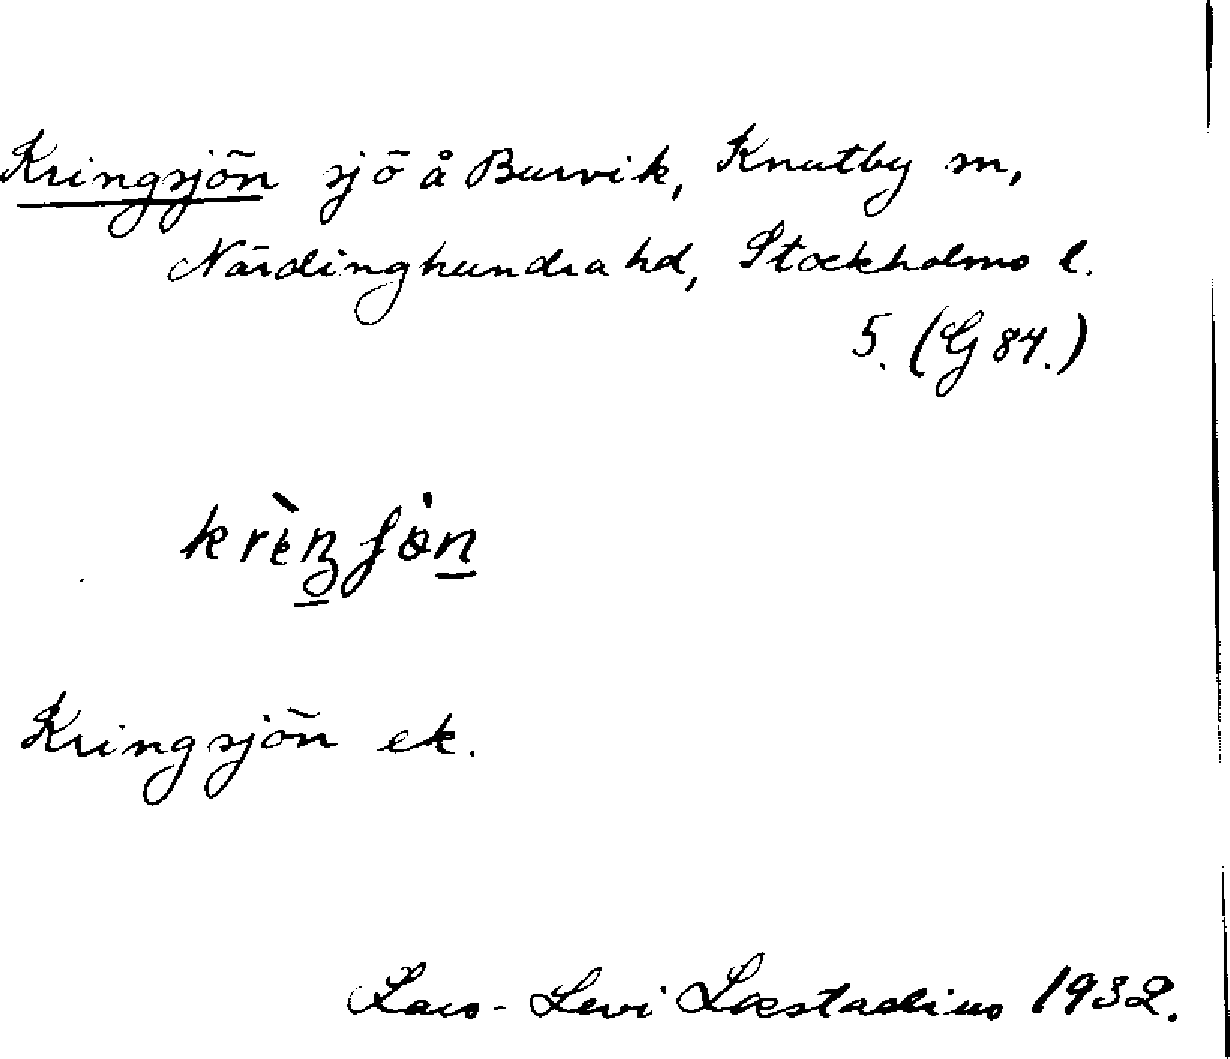 Kringsjön sjö å Burvik, Knutby sn,
Närdinghundra hd, Stockholms l.
5. (G 84.)
Kringsjön ek.
Lars-Levi Læstadius 1932.